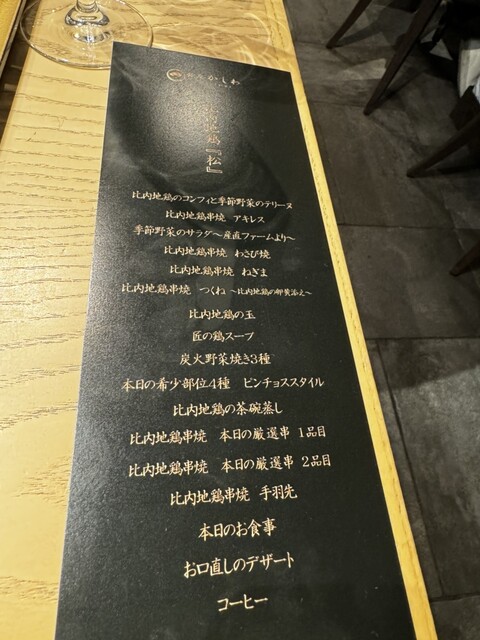 比内地鶏『松』
比内地鶏のコンフィと季節野菜のテリーヌ
比内地鶏串焼 アキレス
季節野菜のサラダ〜産直ファームより〜
比内地鶏串焼 わさび焼
比内地鶏串焼 ねぎま
比内地鶏串焼 つくね 〜比内地鶏の卵黄添え〜
比内地鶏の玉
匠の鶏スープ
炭火野菜焼き3種
本日の希少部位4種 ピンチョススタイル
比内地鶏の茶碗蒸し
比内地鶏串焼 本日の厳選串 1品目
比内地鶏串焼 本日の厳選串 2品目
比内地鶏串焼 手羽先
本日のお食事
お口直しのデザート
コーヒー